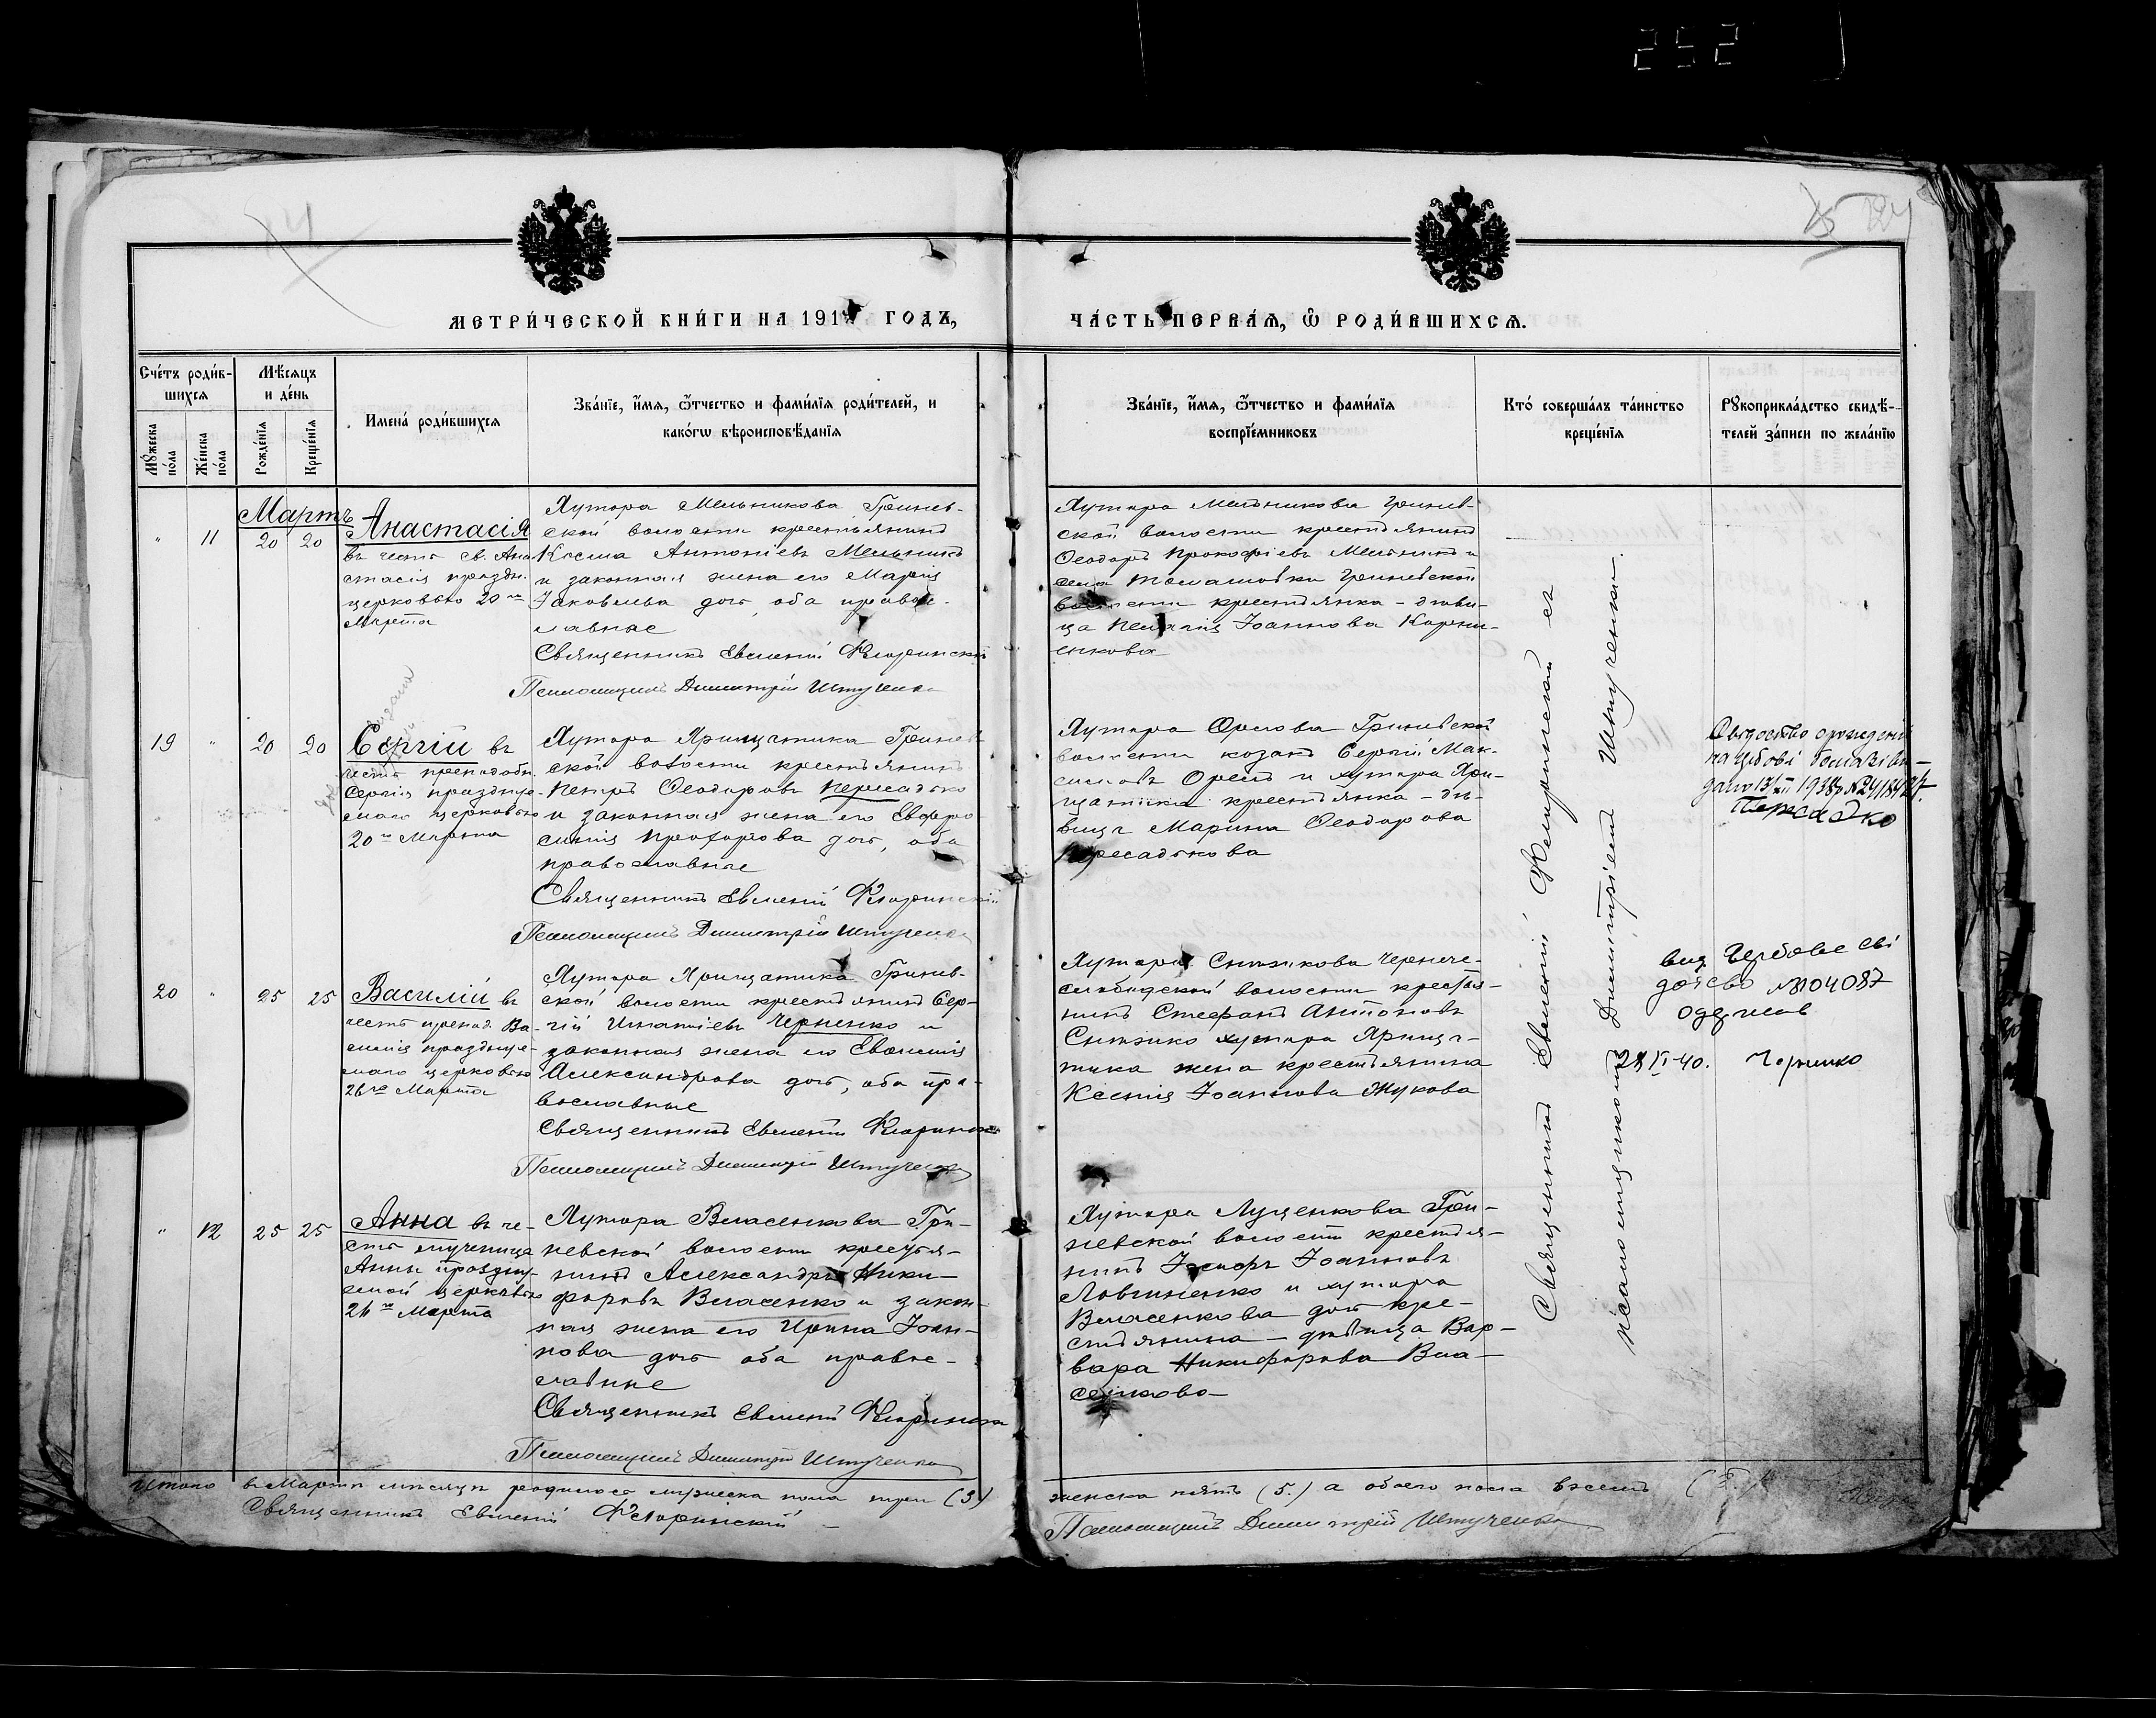 252
МЕТРИ́ЧЕСКОЙ КНИ́ГИ НА 191 ГОДЪ,
ЧА́СТЬ ПЕРВА́Я, Ѡ РОДИ́ВШИХСЯ.
Сче́тъ роди́в-
шихся
Мѣ́сяцъ
и де́нь
Мꙋ́жеска
по́ла
Же́нска
по́ла
Рожде́нїя
Креще́нїя
Имена́ роди́вшихся
Зва́нїе, и́мя, ѻ́тчество и фами́лїя роди́телей, и
како́гѡ вѣроисповѣ́данїя
Зва́нїе, и́мя, ѻ́тчество и фами́лїя
воспрїе́мниковъ
Кто́ соверша́лъ та́инство
креще́нїя
Рꙋкоприкла́дство свидѣ́-
телей за́писи по жела́нїю
Мартъ
" 11 20 20
Анастасія
въ честь св. Ана
стасіи праздн.
церковью 20го
Марта
Хутора Мельникова Гринев-
ской волости крестьянинъ
Косма Антоніевъ Мельникъ
и законная жена его Марія
Іаковлева дочь, оба правос-
лавные
Священникъ Евгеній
Псаломщикъ Димитрій Штученко
Хутора Мельникова Гринев-
ской волости крестьянинъ
Ѳеодоръ Прокофіевъ Мельникъ и
села Томашовки Гриневской
волости крестьянка - дѣви-
ца Пелагія Іоаннова Корни-
енкова
19 " 20 20
Сергій въ
честь преподобн.
Сергія праздну-
емаго церковью
20го Марта
Хутора Хрищатика Гринев-
ской волости крестьянинъ
Петръ Ѳеодоровъ Пересадько
и законная жена его Евфро
синія Прохорова дочь, оба
православные
Священникъ Евгеній
Псаломщикъ Димитрій Штученко
Хутора Орлова Гриневской
волости козакъ Сергій Мак-
симовъ Орелъ и хутора Хри-
щатика крестьянка - дѣ-
вица Марина Ѳеодорова
Пересадькова
20 " 25 25
Василій въ
честь препод. Ва-
силія праздну-
емаго церковью
26го Марта
Хутора Хрищатика Гринев-
ской волости крестьянинъ Сер-
гій Игнатіевъ Черненко и
законная жена его Евгенія
Александрова дочь, оба пра-
вославные
Священникъ Евгеній
Псаломщикъ Димитрій Штученко
Хутора Снѣжкова Черниче-
слободской волости крестья-
нинъ Стефанъ Антоновъ
Снѣжко хутора Хрища-
тика жена крестьянина
Ксенія Іоаннова Жукова
№ 104087
одержав
Черненко
" 12 25 25
Анна въ че-
сть мученицы
Анны праздну-
емой церковью
26го Марта
Хутора Власенкова Гри-
невской волости крестья-
нинъ Александръ Ники-
форовъ Власенко и закон-
ная жена его Ирина Іоан-
нова дочь оба правос-
лавные
Священникъ Евгеній
Псаломщикъ Димитрій Штученко
Хутора Луценкова Гри-
невской волости крестья-
нинъ Іосифъ Іоанновъ
и хутора
Власенкова дочь кре-
стьянина - дѣвица Вар-
вара Никифорова Вла-
сенкова
Священникъ Евгеній съ
псаломщикомъ Димитріемъ Штученко.
Итого въ Мартѣ мѣсяцѣ родилось мужеска пола три (3)
женска пять (5.) а обоего пола восемь
Священникъ Евгеній
Псаломщикъ Димитрій Штученко